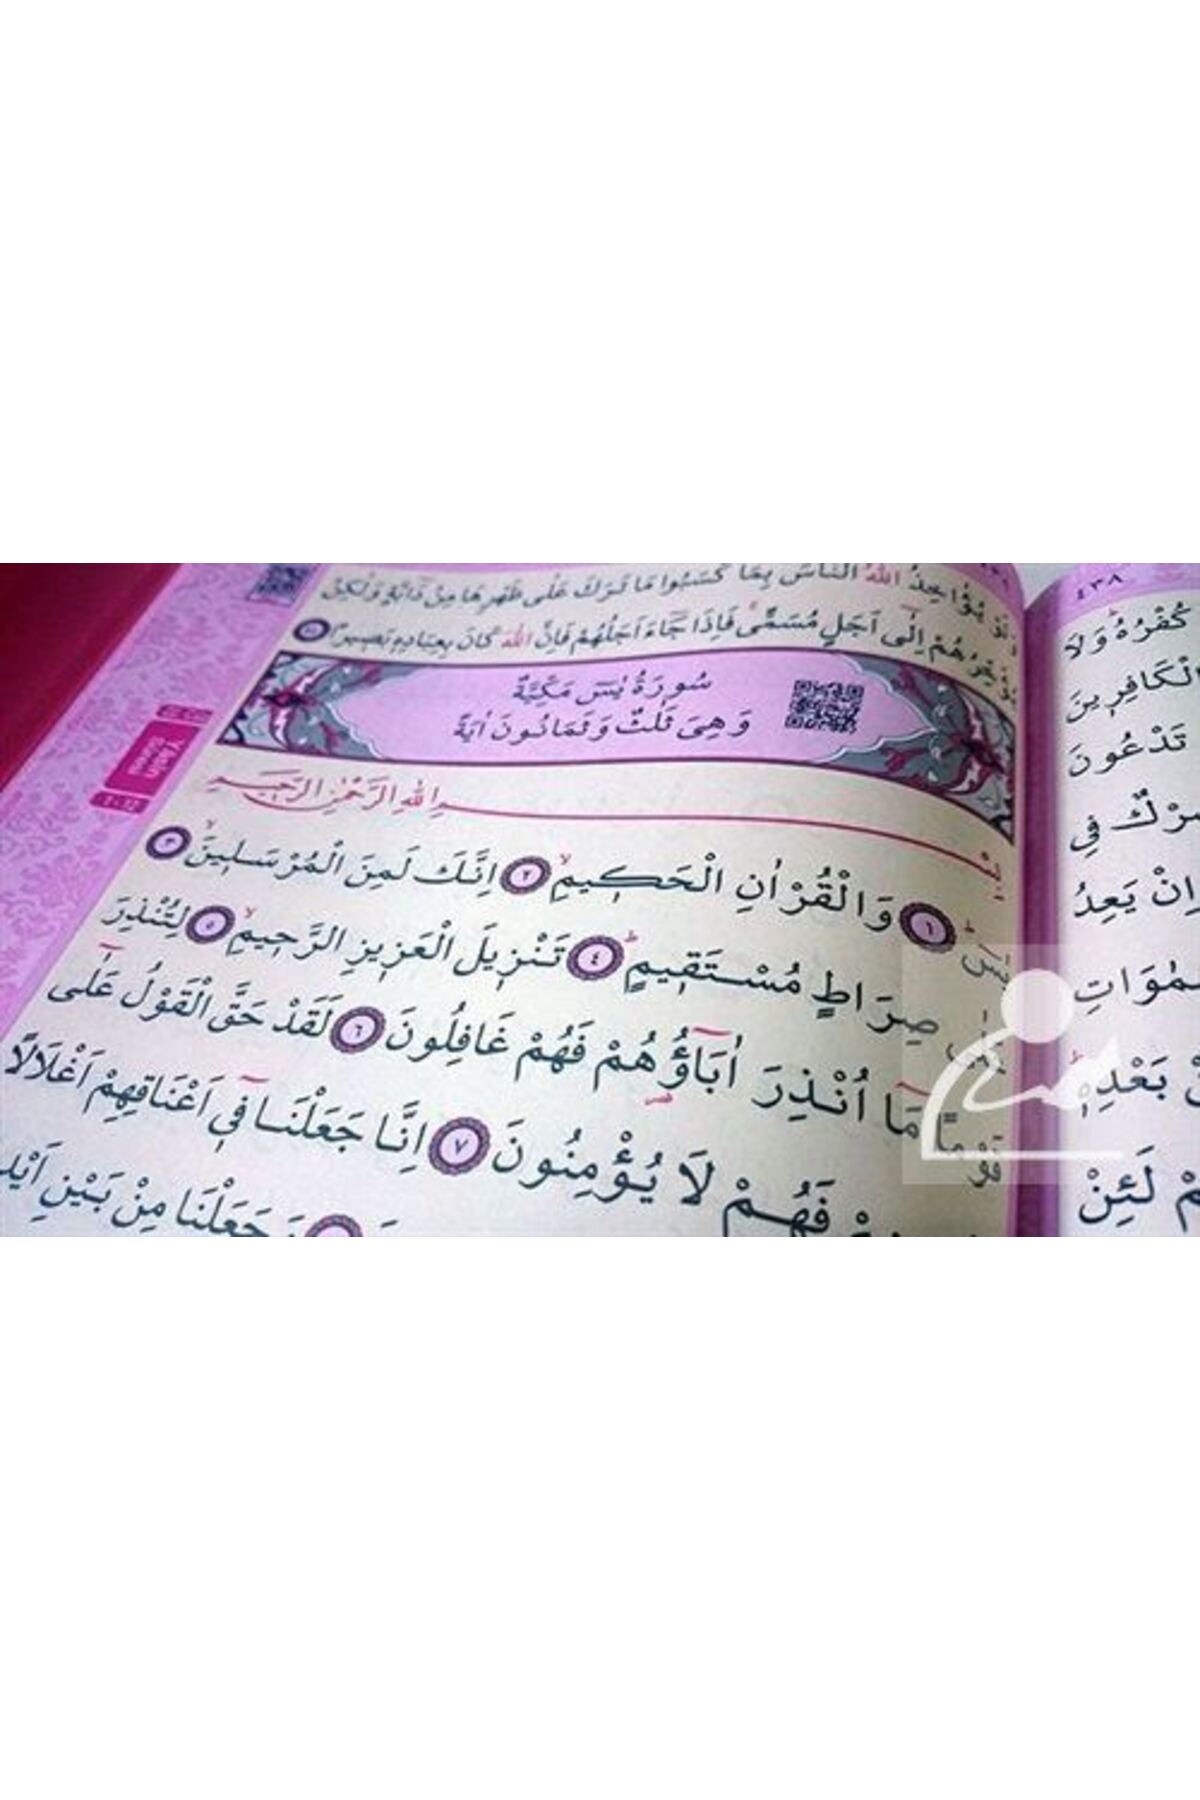 يُؤَاخِذُ اللّٰهُ النَّاسَ بِمَا كَسَبُوا مَا تَرَكَ عَلٰى ظَهْرِهَا مِنْ دَٓابَّةٍ وَلٰكِنْ
يُؤَخِّرُهُمْ اِلٰٓى اَجَلٍ مُسَمًّىۚ فَاِذَا جَٓاءَ اَجَلُهُمْ فَاِنَّ اللّٰهَ كَانَ بِعِبَادِهِ بَصِيرًا
سُورَةُ يٰسٓ مَكِّيَّةٌ
وَهِيَ ثَلٰثٌ وَثَمَانُونَ اٰيَةً
بِسْمِ اللّٰهِ الرَّحْمٰنِ الرَّحِيمِ
يٰسٓۜ ﴿١﴾ وَالْقُرْاٰنِ الْحَكِيمِۙ ﴿٢﴾ اِنَّكَ لَمِنَ الْمُرْسَلِينَۙ ﴿٣﴾
صِرَاطٍ مُسْتَقِيمٍۜ ﴿٤﴾ تَنْزِيلَ الْعَزِيزِ الرَّحِيمِۙ ﴿٥﴾ لِتُنْذِرَ
قَوْمًا مَٓا اُنْذِرَ اٰبَٓاؤُ۬هُمْ فَهُمْ غَافِلُونَ ﴿٦﴾ لَقَدْ حَقَّ الْقَوْلُ عَلٰٓى
فَهُمْ لَا يُؤْمِنُونَ ﴿٧﴾ اِنَّا جَعَلْنَا فٓي اَعْنَاقِهِمْ اَغْلَالًا
وَجَعَلْنَا مِنْ بَيْنِ
Yasin
٤٣٨
كُفْرُهُۜ وَلَا
الْكَافِرِينَ
تَدْعُونَ
شِرْكٌ فِي
اِنْ يَعِدُ
بَعْدِهِۜ
لَئِنْ